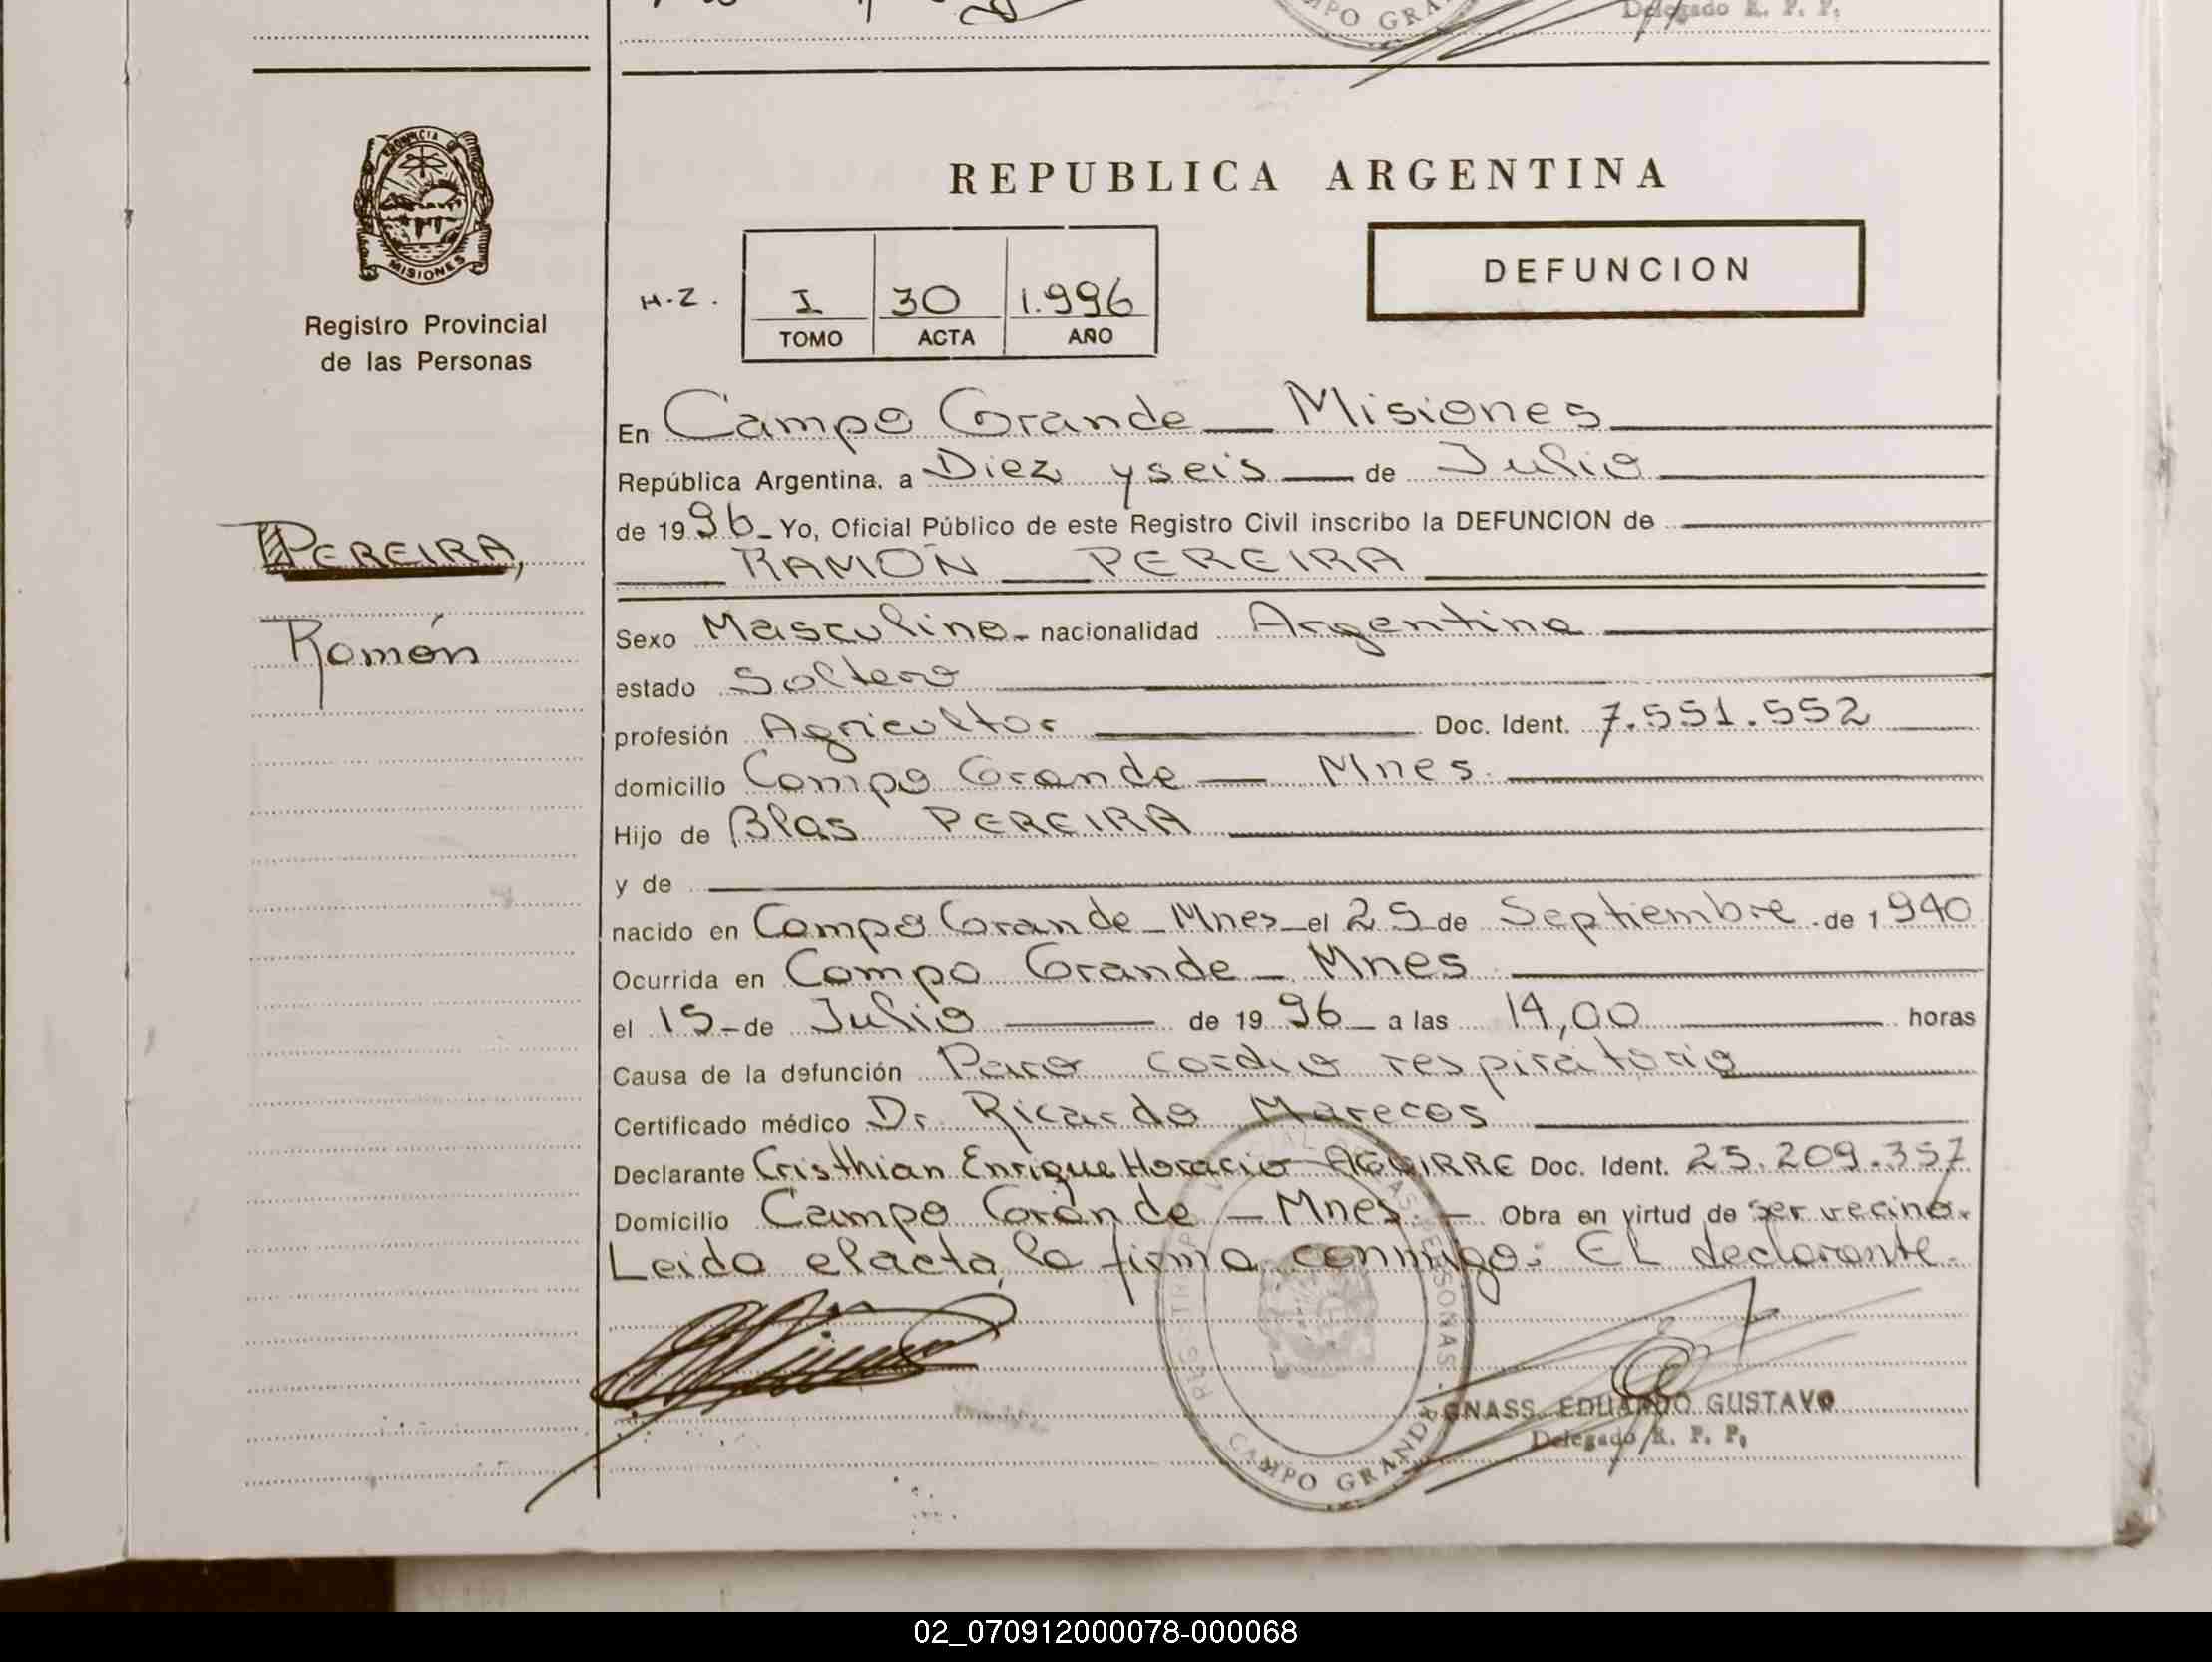 CAMPO GRA
Delegado R. P. P.
PROVINCIA
MISIONES
Registro Provincial
de las Personas
REPUBLICA ARGENTINA
DEFUNCION
H-Z. I 30 1.996
TOMO ACTA AÑO
En Campo Grande — Misiones
República Argentina, a Diez y seis — de Julio
de 1996 - Yo, Oficial Público de este Registro Civil inscribo la DEFUNCION de
RAMÓN — PEREIRA
PEREIRA,
Ramón
Sexo Masculino - nacionalidad Argentina
estado Soltero
profesión Agricultor Doc. Ident. 7.551.552
domicilio Campo Grande — Mnes.
Hijo de Blas PEREIRA
y de
nacido en Campo Grande - Mnes - el 25 de Septiembre de 1940
Ocurrida en Campo Grande - Mnes
el 15 - de Julio — de 1996 - a las 14,00 horas
Causa de la defunción Paro cardio respiratorio
Certificado médico Dr. Ricardo Marecos
Declarante Cristhian Enrique Horacio AGUIRRE Doc. Ident. 25.209.357
Domicilio Campo Grande — Mnes. - Obra en virtud de ser vecino.
Leida el acta, la firma conmigo: EL declarante.
PERSONAS
CAMPO GRANDE
GNASS, EDUARDO GUSTAVO
Delegado R. P. P.
02_070912000078-000068